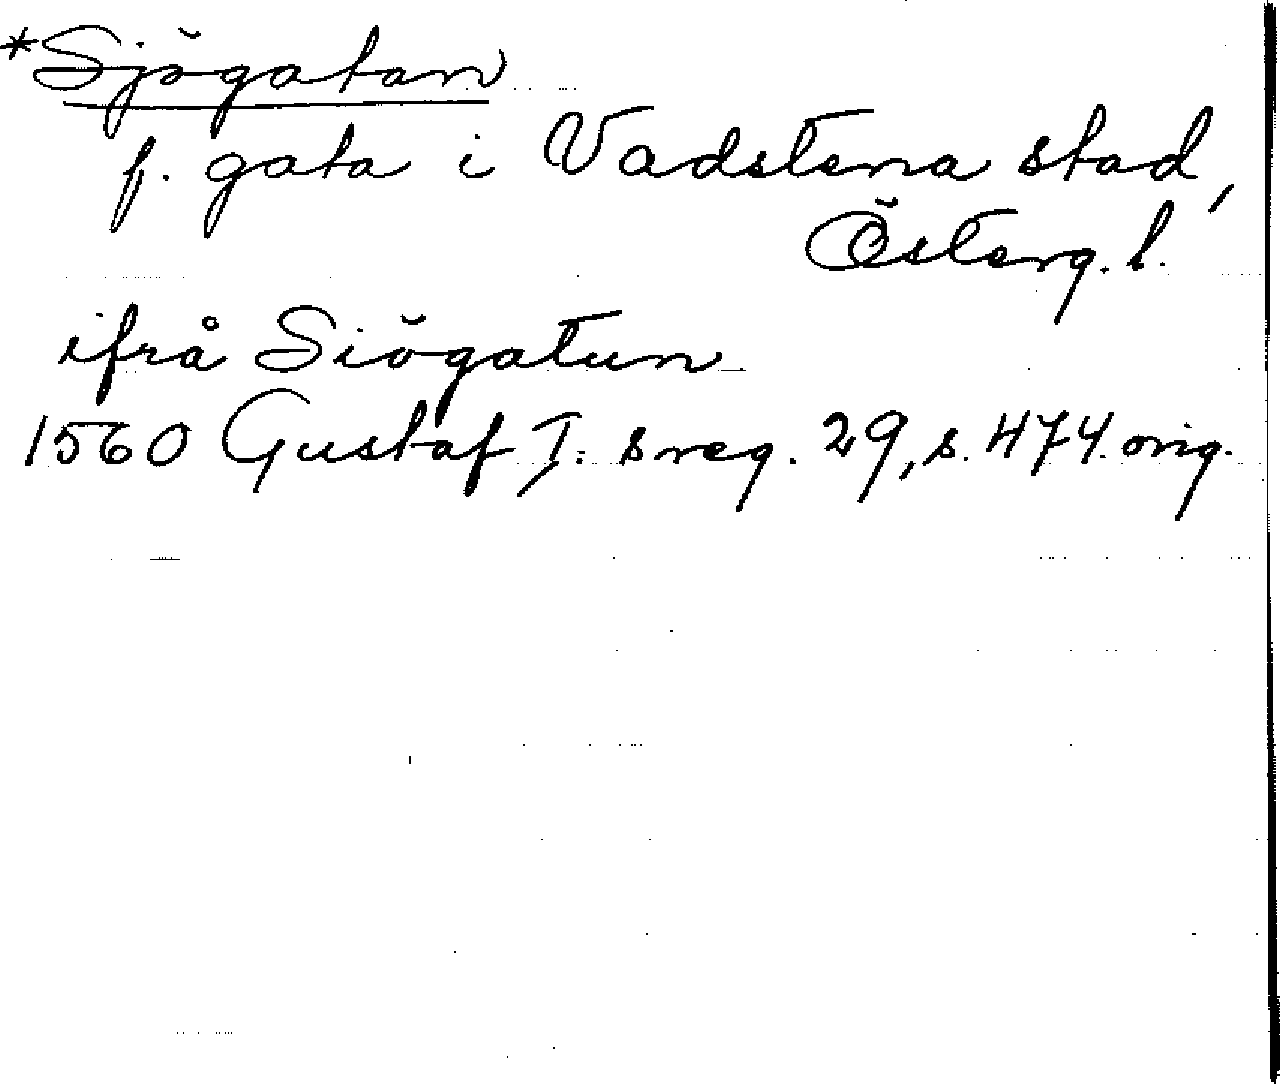 *Sjögatan
f. gata i Vadstena stad,
Österg. l.
ifrå Siögatun
1560 Gustaf I:s reg. 29, s. 474. orig.